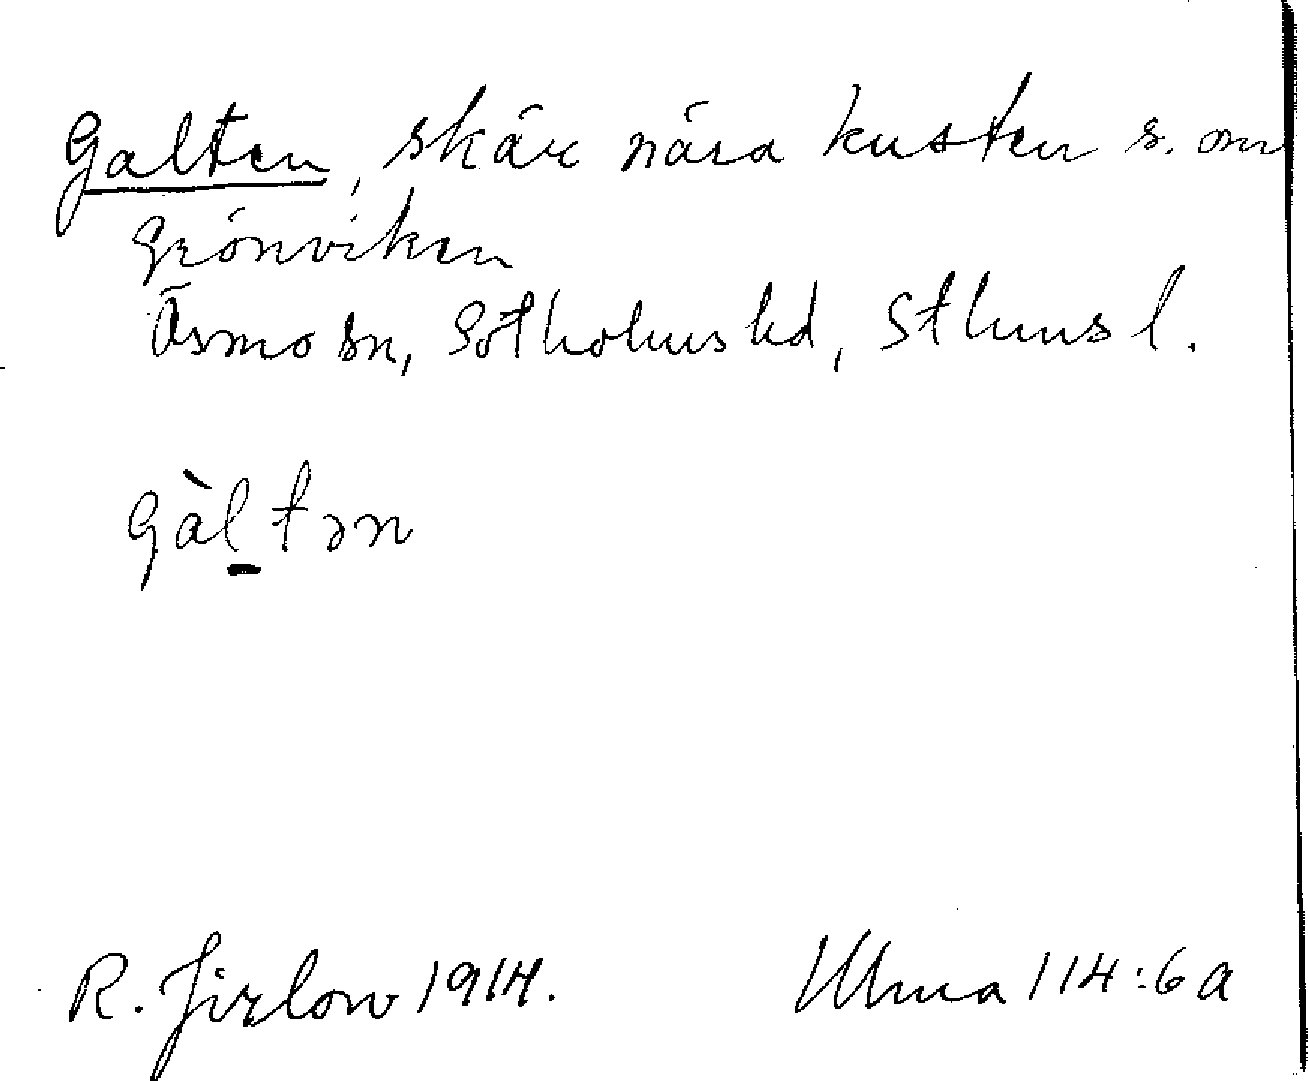 Galten, skär nära kusten s. om
Grönviken
Ösmo sn, Sotholms hd, Sthms l.
gàl̠tən
R. Jirlow 1914.
Ulma 114:6a